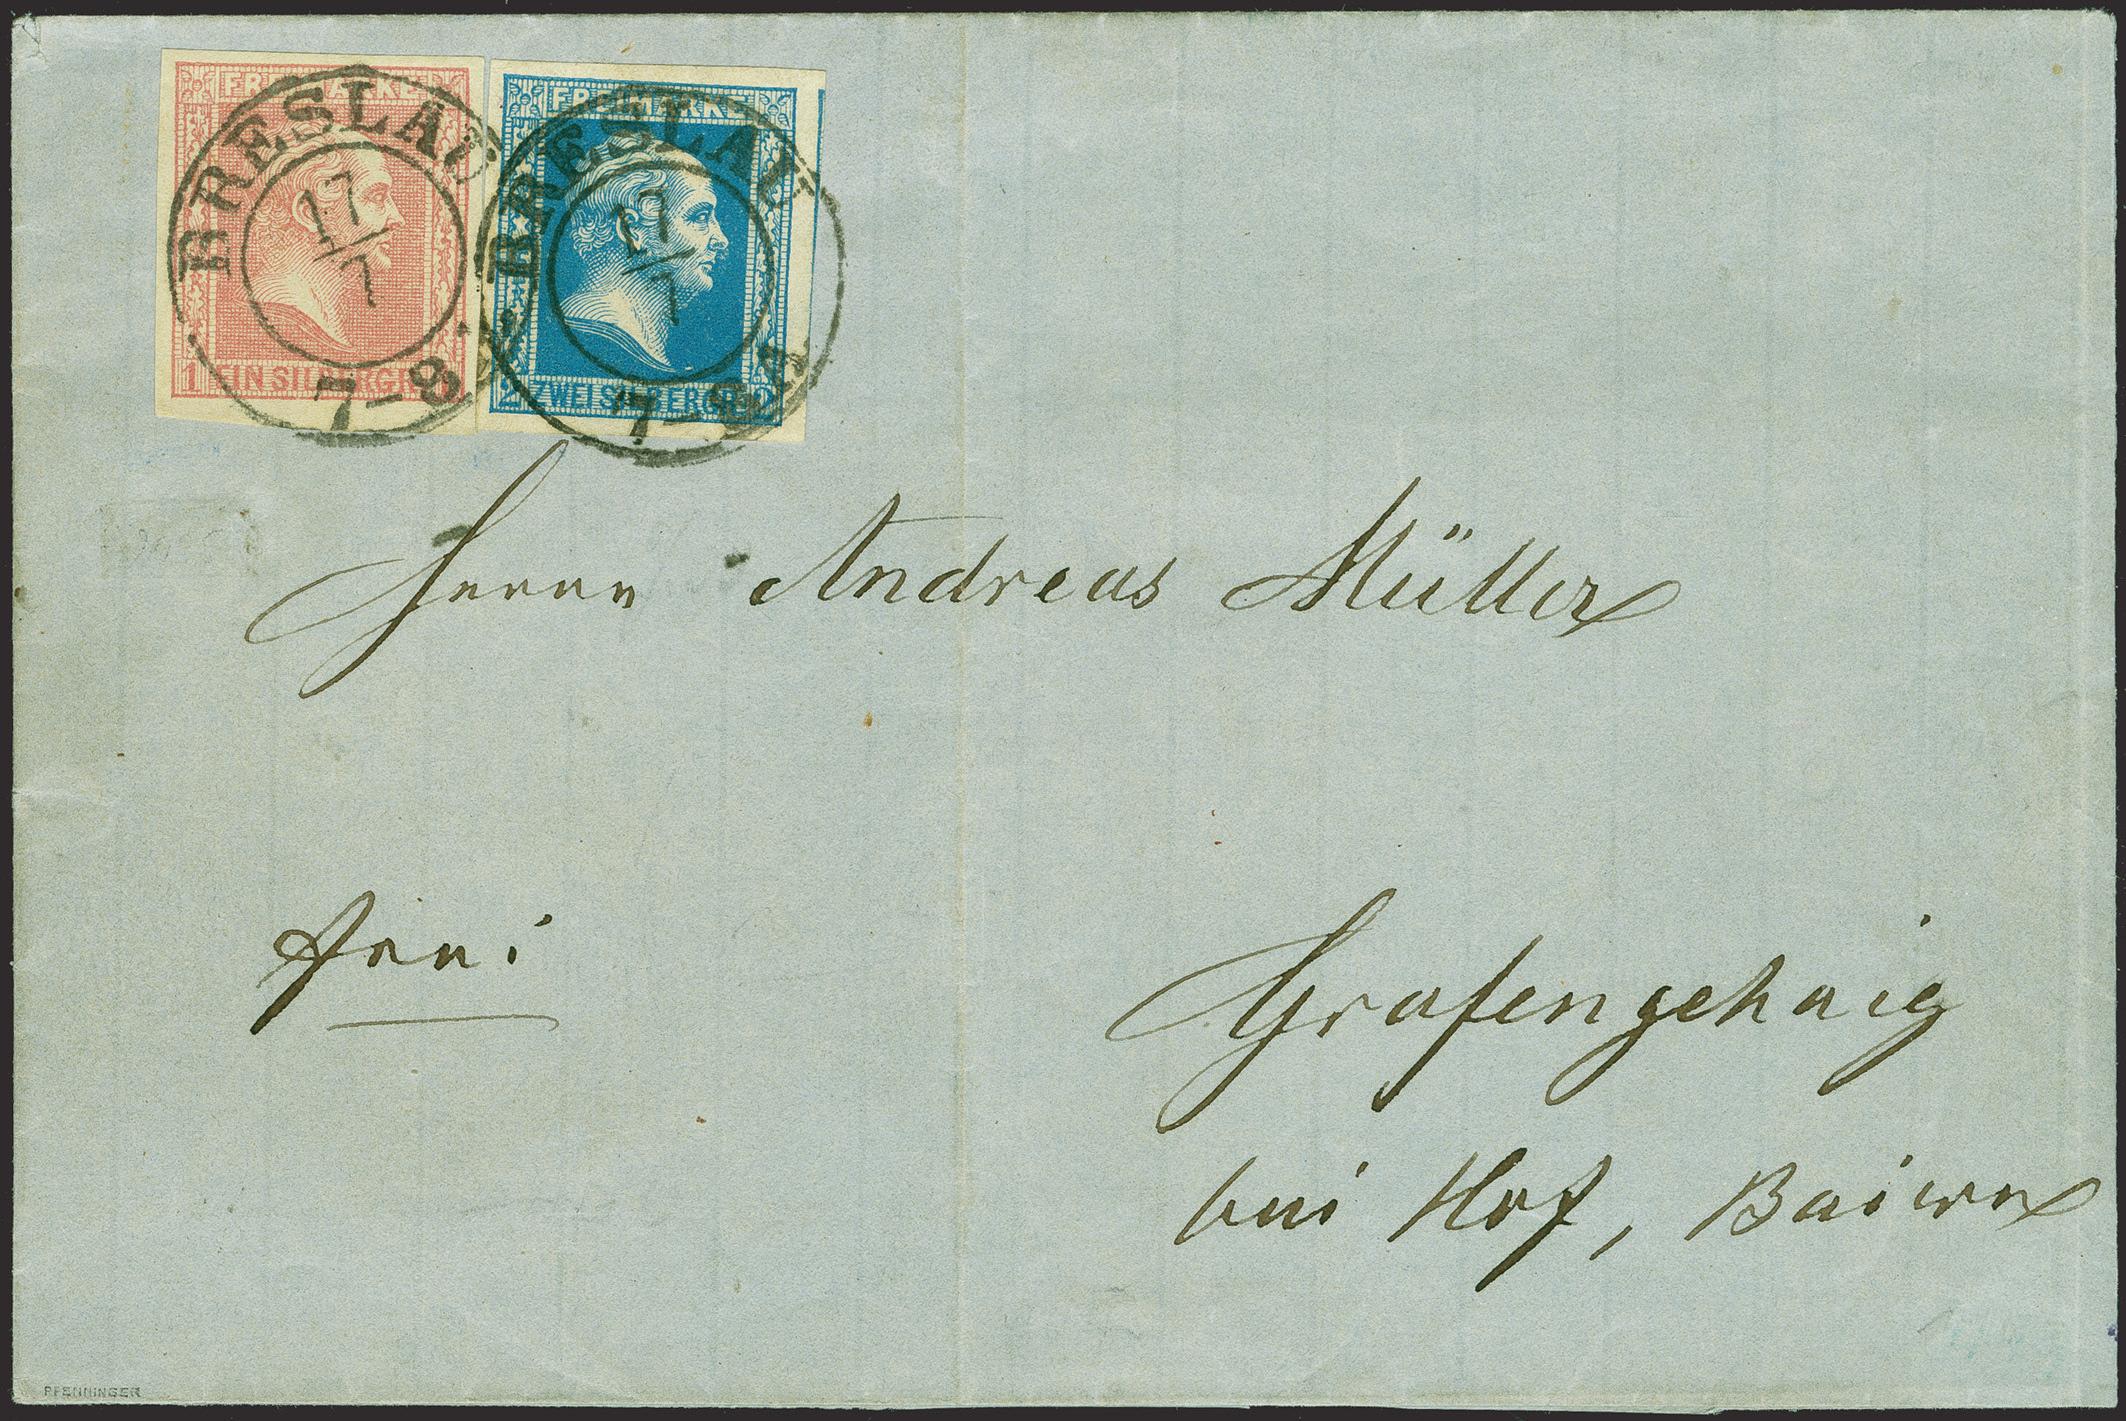 FREIMARKE
1 EIN SILBERGR.
BRESLAU
17/7
7-8
FREIMARKE
2 ZWEI SILBERGR. 2
BRESLAU
17/7
7-8
Herrn Andreas Müller
frei
Grafengehaig
bei Hof, Baiern
PFENNINGER